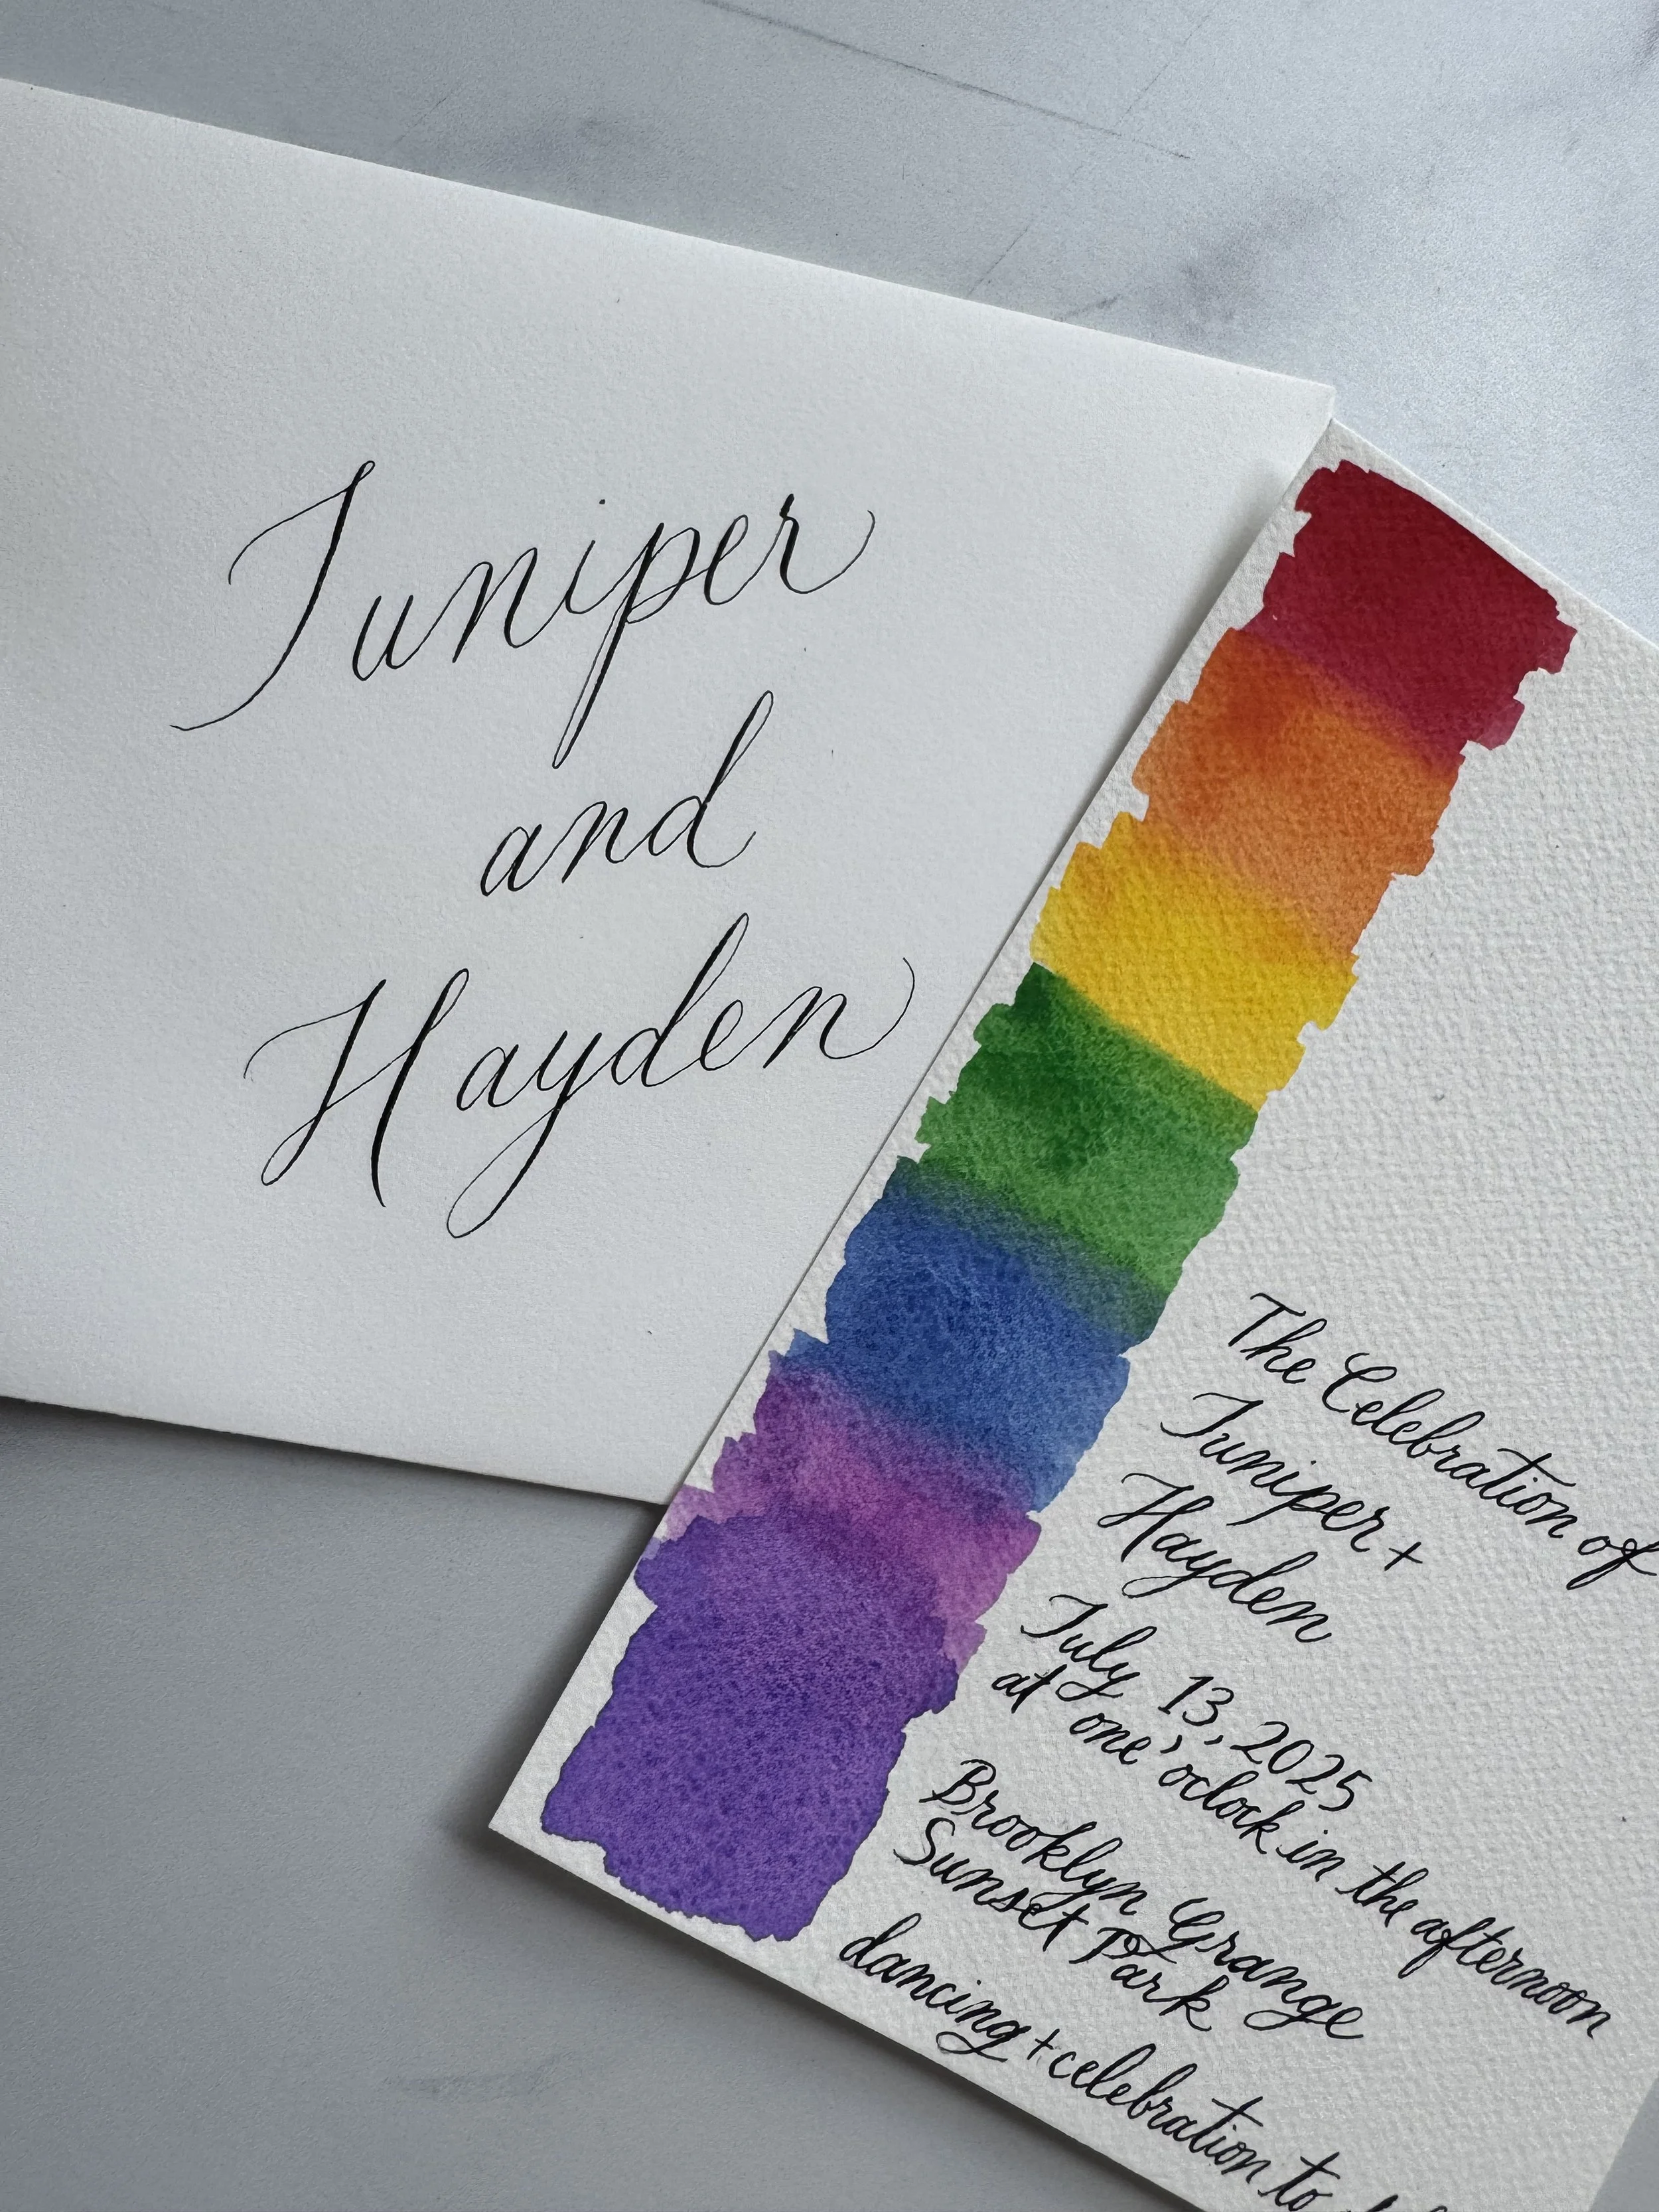 Juniper
and
Hayden
The Celebration of
Juniper +
Hayden
July 13, 2025
at one o'clock in the afternoon
Brooklyn Grange
Sunset Park
dancing + celebration to